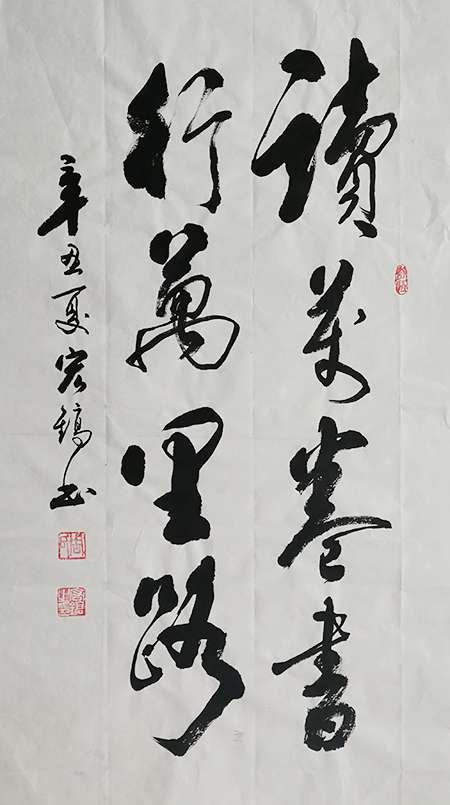 讀萬卷書
行萬里路
辛丑夏宏鎬書